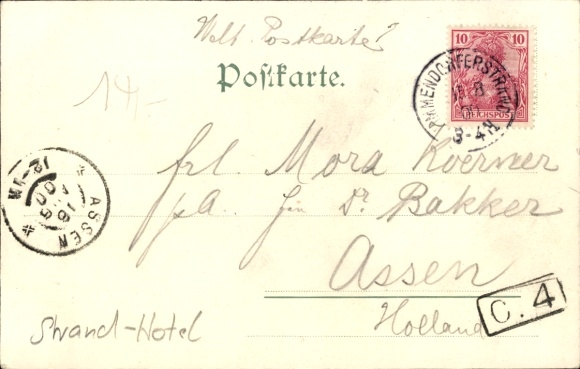 Welt. Postkarte?
Postkarte.
14,-
10
REICHSPOST
TIMMENDORFERSTRAND
8
3-4N
Frl. Mora Koerner
p.A. Dr. Bakker
Assen
Holland
ASSEN
12-1N
C. 4
Strand-Hotel